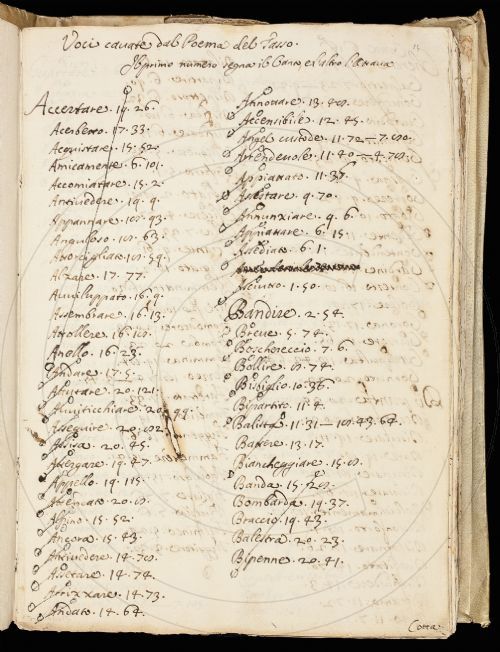 Voci cavate dal Poema del Tasso.
Il primo numero segna il Canto e l'altro l'ottava
Accertare. 19. 26.
Acerbetto. 17. 33.
Acquistare. 15. 52.
Amicamente. 6. 101.
Accomiatare. 15. 2.
Antivedere. 19. 9.
Appannare. 93.
Anguloso. 63.
59.
Alzare. 17. 77.
Avviluppato. 16. 9.
Assembrare. 16. 13.
Attollere. 16.
Anello. 16. 23.
Andare. 17. 5.
20. 121.
Avviticchiare. 20. 99.
Eseguire. 20.
Assisa. 20. 25.
Astergare. 19. 47.
Appello. 19. 115.
20.
Alpino. 15. 52.
Ancora. 15. 43.
Antivedere. 14.
14. 74.
Arrizzare. 14. 73.
Andato. 14. 64.
Annottare. 13.
Accensibile. 12. 45.
Angel custode. 11. 72 — 7.
Arrendevole. 11. 40 — 4.
Appianato. 11. 37.
Assestare. 9. 70.
Annunziare. 9. 6.
Appiattare. 6. 15.
Assediato. 6. 1.
1. 50.
Bandire. 2. 54.
Breve. 5. 74.
Boschereccio. 7. 6.
Bollire. 74.
Bisbiglio. 10. 36.
Bipartito. 11. 4.
Balista. 11. 31 — 43. 64.
Battere. 13. 17.
Biancheggiare. 15.
Banda. 15.
Bombarda. 19. 37.
Braccio. 19. 43.
Balestra. 20. 23.
Bipenne. 20. 41.
Cotta